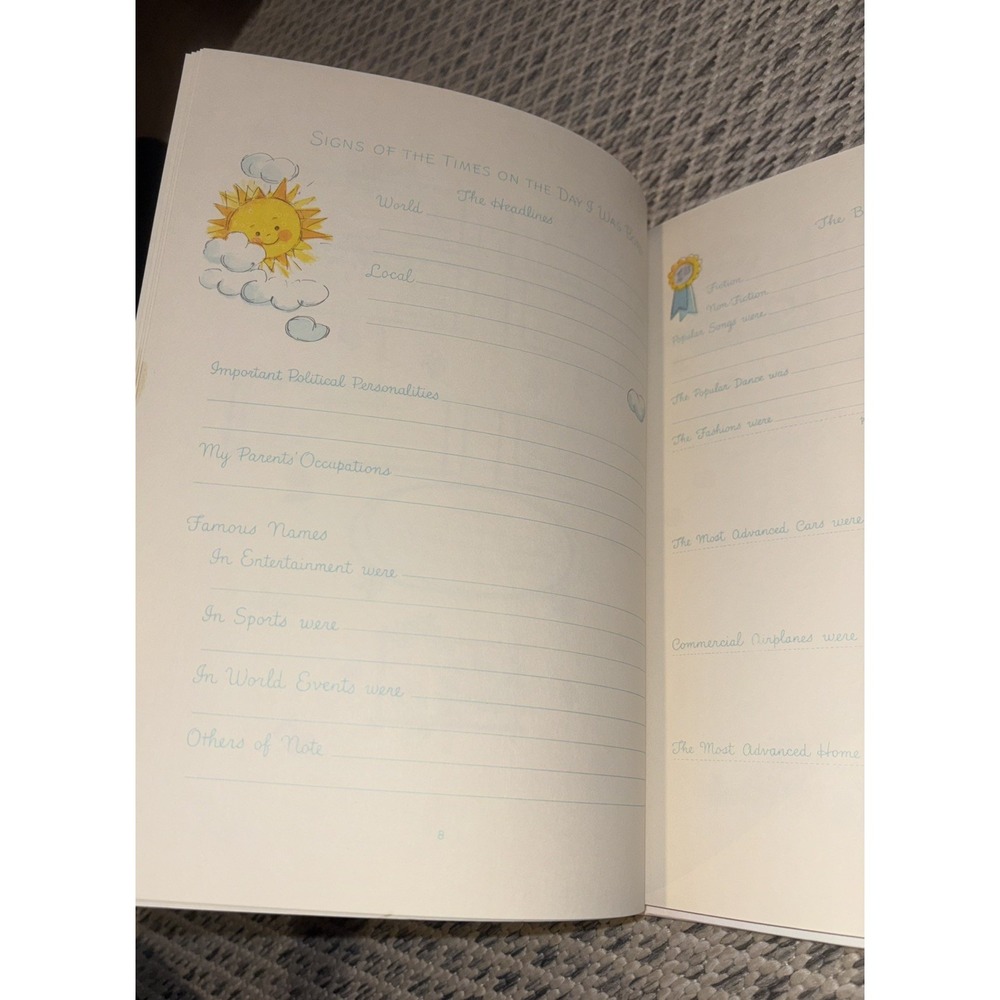 SIGNS OF THE TIMES ON THE DAY I WAS BORN
The Headlines
World
Local
Important Political Personalities
My Parents' Occupations
Famous Names
In Entertainment were
In Sports were
In World Events were
Others of Note
8
The B
Fiction
Non Fiction
Popular Songs were
The Popular Dance was
The Fashions were
The Most Advanced Cars were
Commercial Airplanes were
The Most Advanced Home